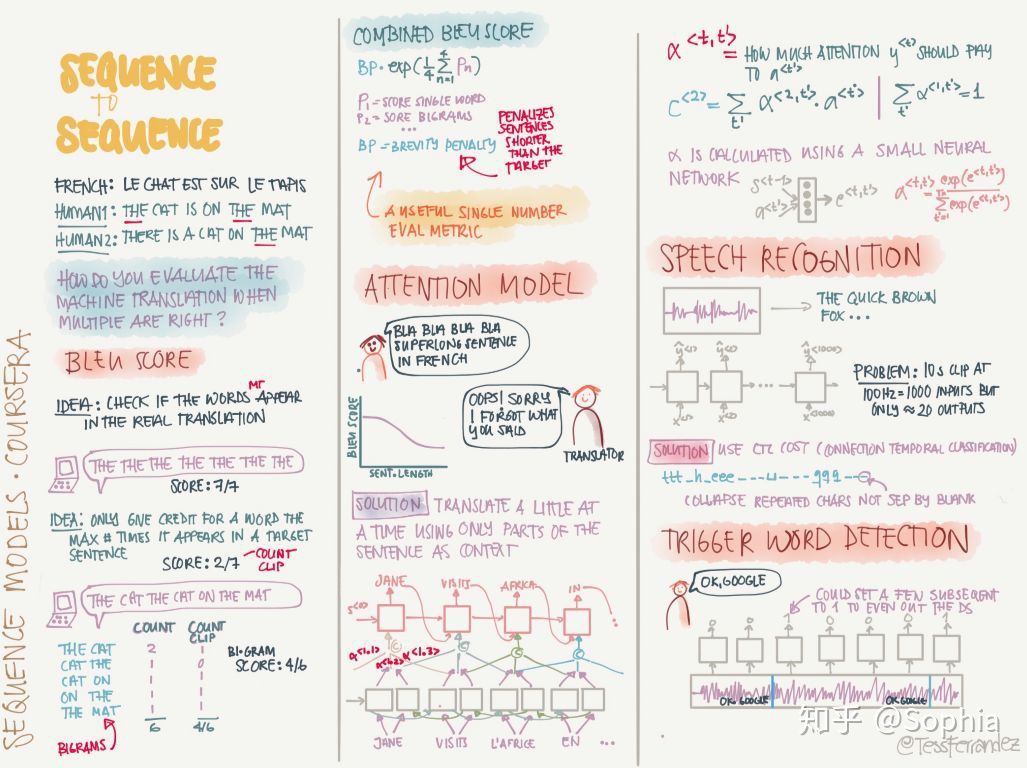 SEQUENCE MODELS · COURSERA
SEQUENCE
TO
SEQUENCE
FRENCH: LE CHAT EST SUR LE TAPIS
HUMAN1: THE CAT IS ON THE MAT
HUMAN2: THERE IS A CAT ON THE MAT
HOW DO YOU EVALUATE THE
MACHINE TRANSLATION WHEN
MULTIPLE ARE RIGHT?
BLEU SCORE
MT
IDEA: CHECK IF THE WORDS APPEAR
IN THE REAL TRANSLATION
THE THE THE THE THE THE THE
SCORE: 7/7
IDEA: ONLY GIVE CREDIT FOR A WORD THE
MAX # TIMES IT APPEARS IN A TARGET
SENTENCE
SCORE: 2/7
COUNT
CLIP
THE CAT THE CAT ON THE MAT
COUNT COUNT
CLIP
THE CAT 2 1
CAT THE 1 0
CAT ON 1 1
ON THE 1 1
THE MAT 1 1
6 4/6
BI-GRAM
SCORE: 4/6
BIGRAMS
COMBINED BLEU SCORE
BP · exp(1/4 4∑n=1 Pn)
P1 = SCORE SINGLE WORD
P2 = SORE BIGRAMS
...
BP = BREVITY PENALTY
PENALIZES
SENTENCES
SHORTER
THAN THE
TARGET
A USEFUL SINGLE NUMBER
EVAL METRIC
ATTENTION MODEL
BLA BLA BLA BLA
SUPERLONG SENTENCE
IN FRENCH
OOPS! SORRY
I FORGOT WHAT
YOU SAID
TRANSLATOR
BLEU SCORE
SENT. LENGTH
SOLUTION TRANSLATE A LITTLE AT
A TIME USING ONLY PARTS OF THE
SENTENCE AS CONTEXT
JANE VISITS AFRICA IN
S<0>
C C C C
α<1,1> α<1,2> α<1,3>
JANE VISITS L'AFRICE EN ...
α<t,t'> = HOW MUCH ATTENTION y<t> SHOULD PAY
TO a<t'>
C<2> = ∑t' α<2,t'> · a<t'> | ∑t' α<1,t'> = 1
α IS CALCULATED USING A SMALL NEURAL
NETWORK
s<t-1>
a<t'>
e<t,t'>
α<t,t'> = exp(e<t,t'>) / Tx∑t'=1 exp(e<t,t'>)
SPEECH RECOGNITION
THE QUICK BROWN
FOX ...
ŷ<1> ŷ<2> ŷ<1000>
...
x<1> x<2> x<1000>
PROBLEM: 10s CLIP AT
100Hz = 1000 INPUTS BUT
ONLY ≈ 20 OUTPUTS
SOLUTION USE CTC COST (CONNECTION TEMPORAL CLASSIFICATION)
ttt_h_eee---⊔---qqq--
COLLAPSE REPEATED CHARS NOT SEP BY BLANK
TRIGGER WORD DETECTION
OK, GOOGLE
COULD SET A FEW SUBSEQENT
TO 1 TO EVEN OUT THE DS
0 0 1 0 0 0 1
OK GOOGLE OK GOOGLE
知乎 @Sophia
@TessFerrandez